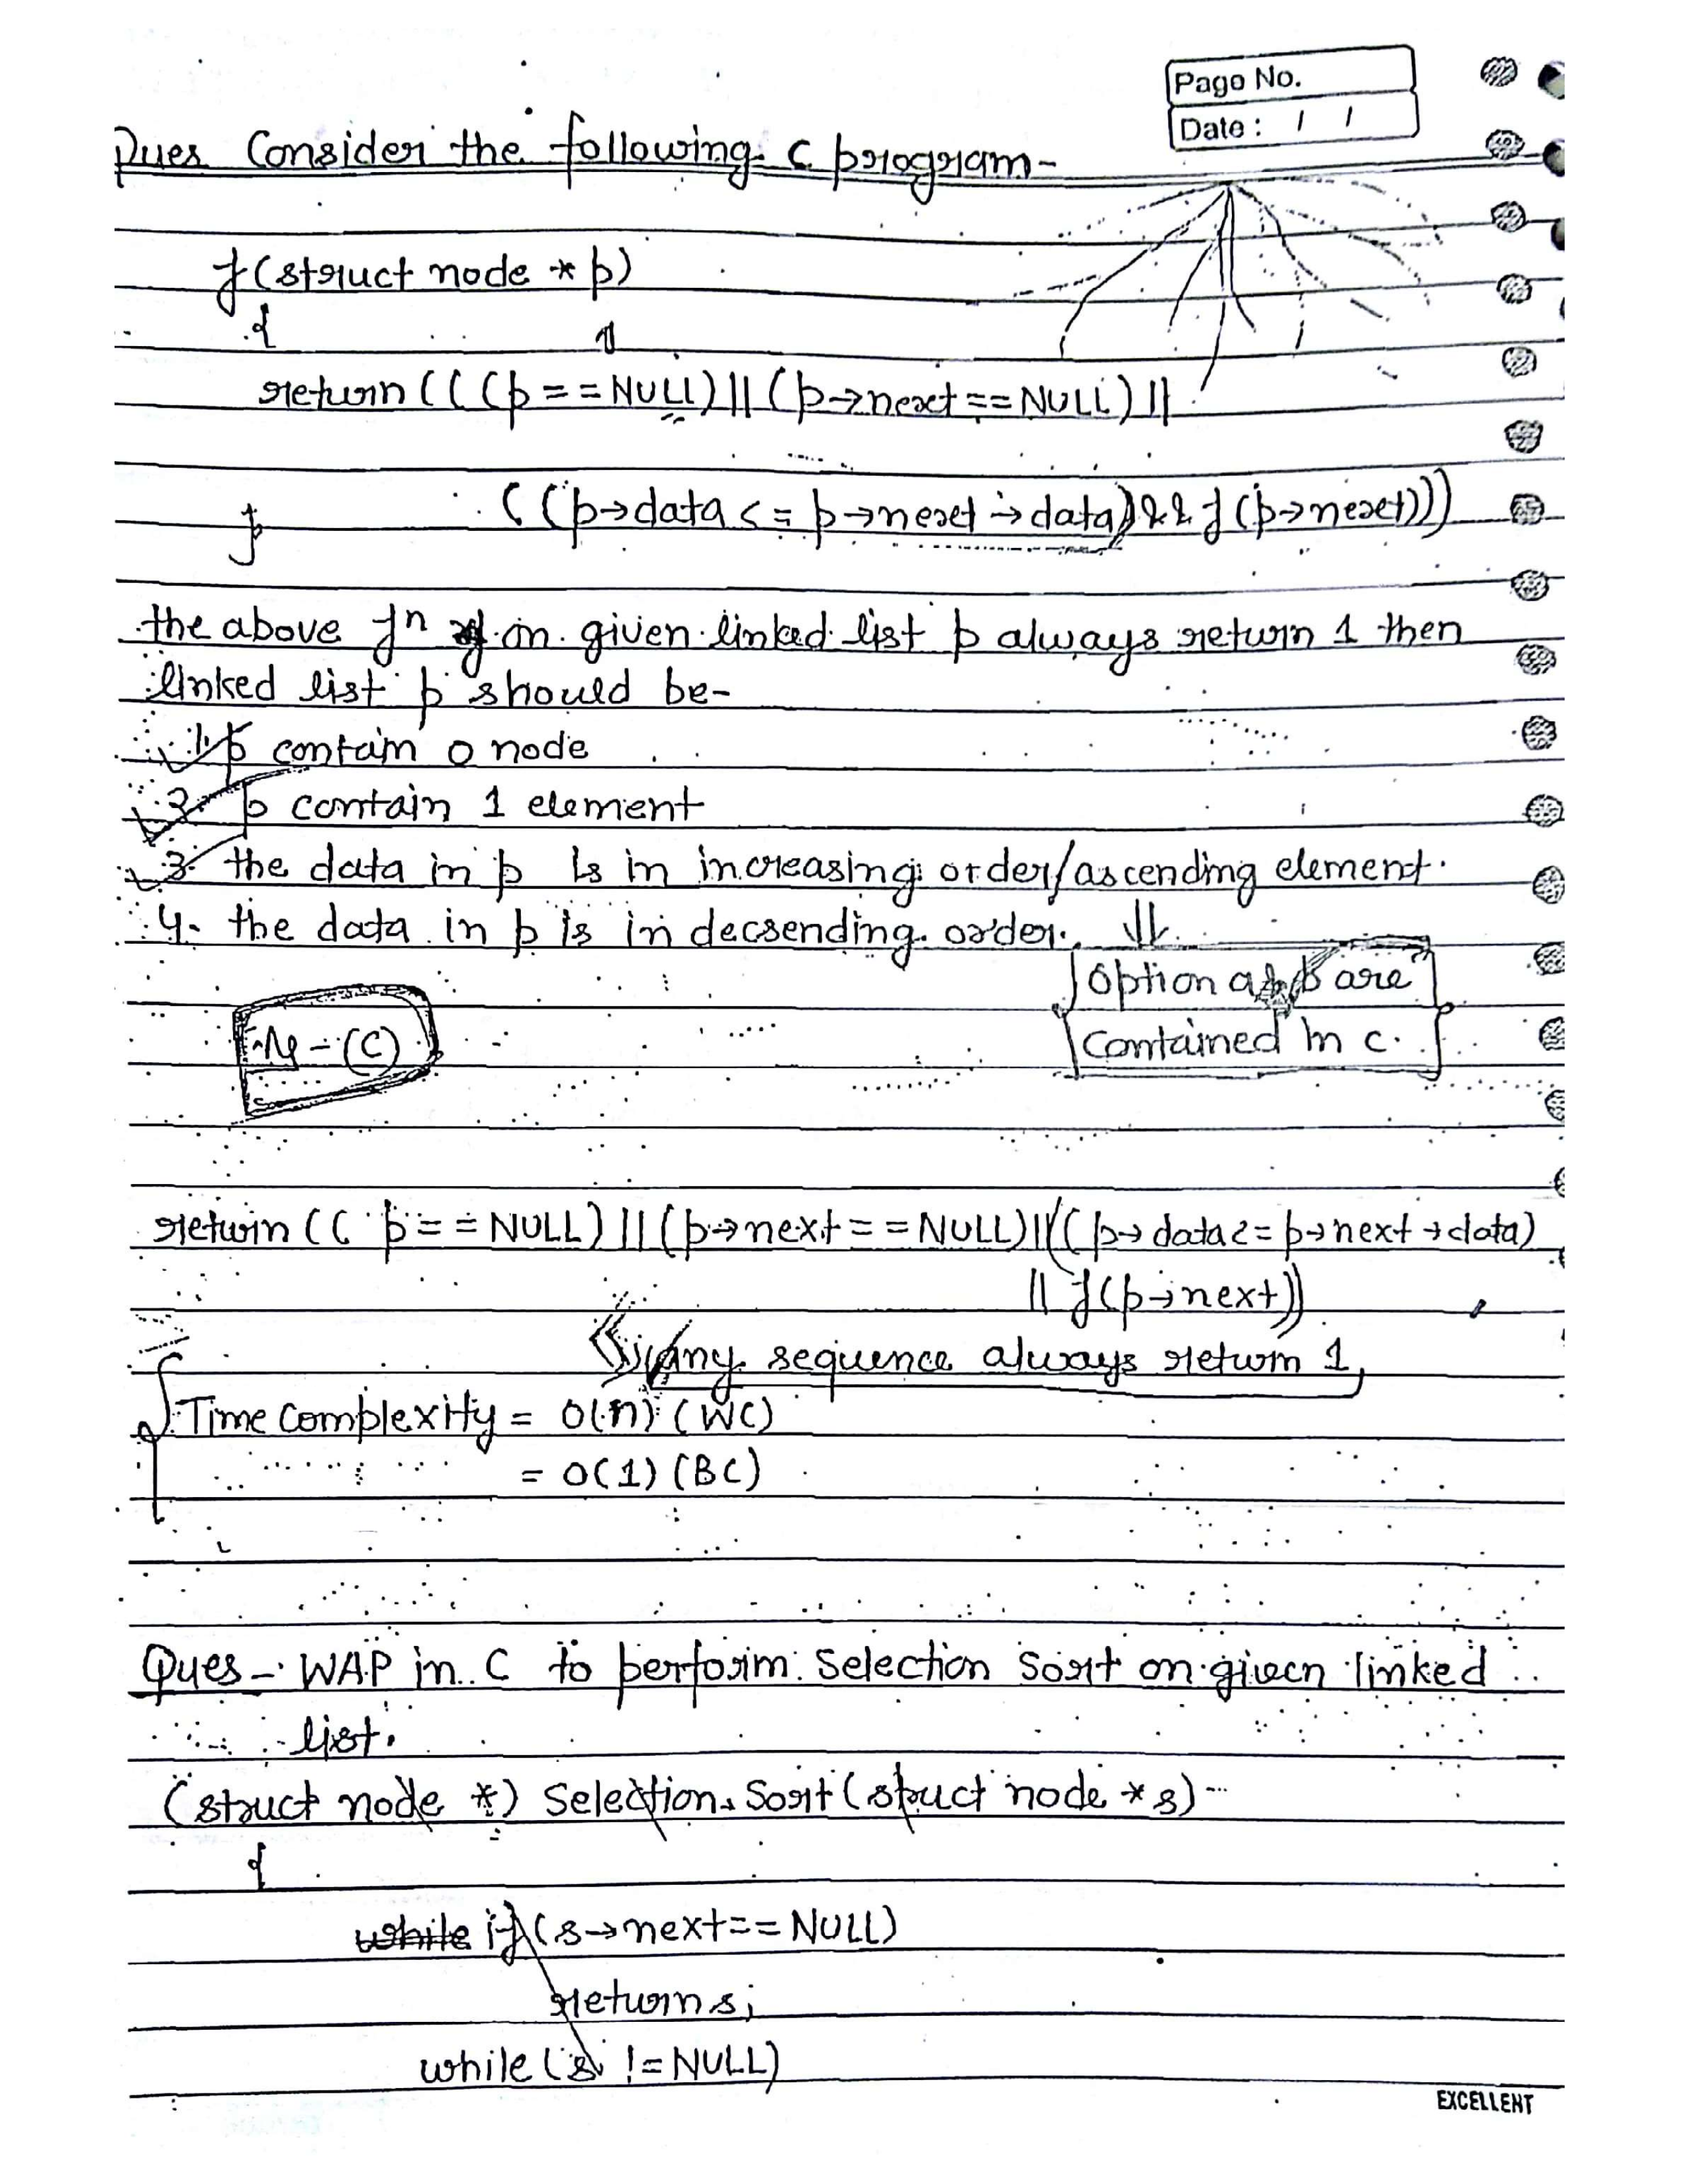 Pago No.
Date : / /
Ques Consider the following C program-
f(struct node * p)
{
return (((p==NULL) || (p→next==NULL) ||
((p→data <= p→next→data) && f(p→next)))
}
the above fn on given linked list p always return 1 then
linked list p should be-
1. p contain 0 node
2. p contain 1 element
3. the data in p is in increasing order/ascending element.
4. the data in p is in decsending order. ⇓
Option a & b are
contained in c.
(C)
return (( p==NULL) || (p→next==NULL) || ((p→data<=p→next→data)
|| f(p→next))
any sequence always return 1
Time complexity = O(n) (WC)
= O(1) (BC)
Ques - WAP in C to perform Selection Sort on given linked
list.
(struct node *) Selection Sort (struct node * s)
{
while if (s→next==NULL)
return s;
while (s != NULL)
EXCELLENT